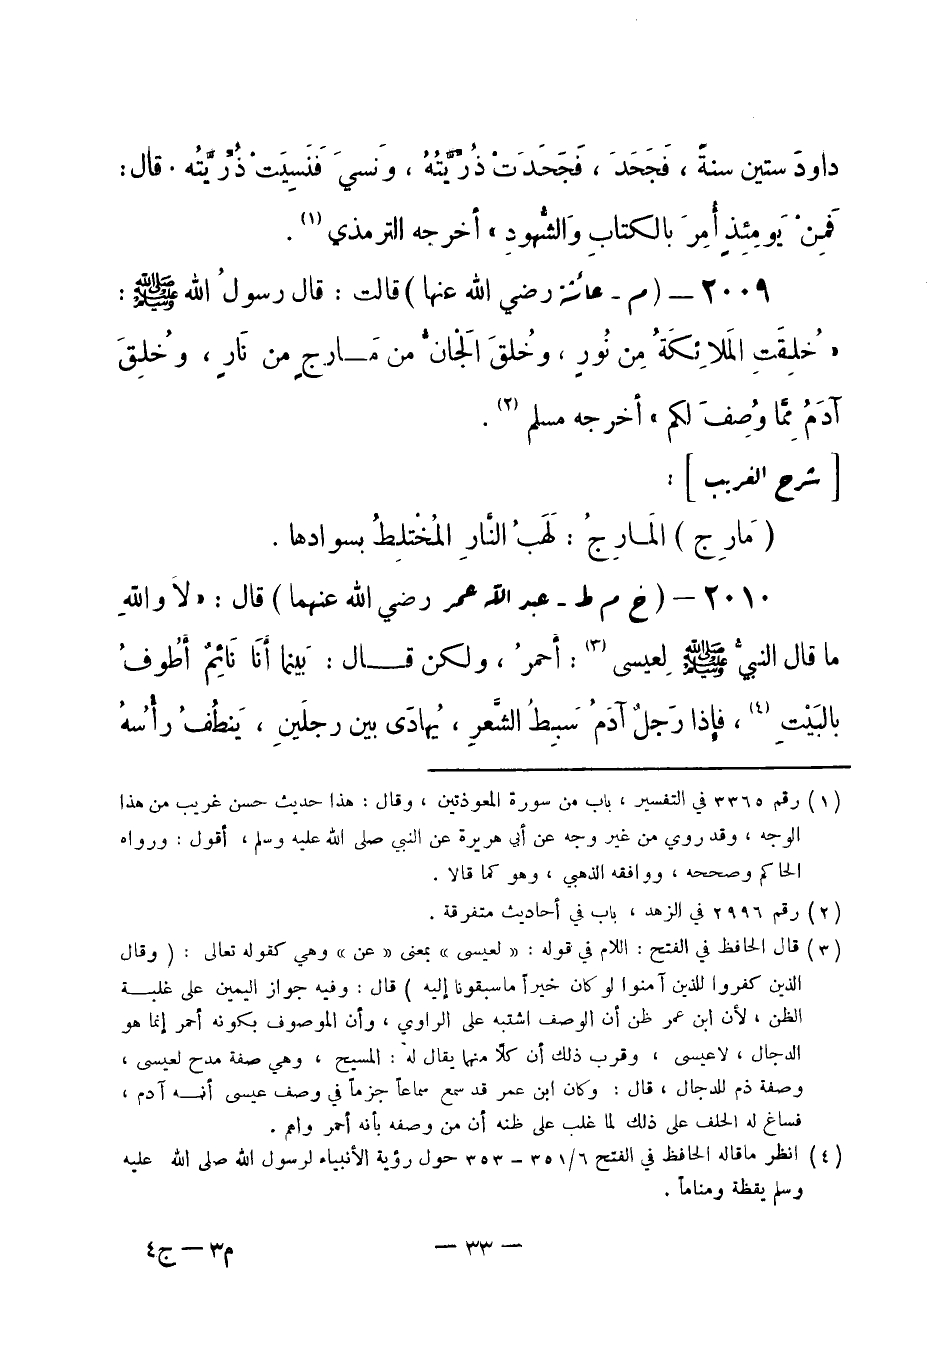 داودَ ستين سنةً ، فَجَحَدَ ، فَجَحَدَتْ ذُرِّيَّتُهُ ، ونَسيَ فَنَسِيَتْ ذُرِّيَّتُه . قال :
فَمِنْ يَومِئِذٍ أُمِرَ بالكتابِ والشُّهودِ » أخرجه الترمذي (١) .
٢٠٠٩ – (م - عائشة رضي الله عنها) قالت : قال رسولُ الله ﷺ :
« خُلِقَتِ المَلائِكَةُ مِن نُورٍ ، وخُلقَ الجَانُّ من مَارجٍ من نَارٍ ، وخُلِقَ
آدَمُ مِمَّا وُصِفَ لكم » أخرجه مسلم (٢) .
[ شرح الغريب ] :
( مَارِج ) المَارِجُ : لَهَبُ النَّارِ المُخْتلِطُ بسوادها .
٢٠١٠ – (خ م ط - عبد الله عمر رضي الله عنهما) قال : « لاَ واللهِ
ما قال النبيُّ ﷺ لِعيسى (٣) : أحمرُ ، ولكن قال : بَينما أنَا نَائِمٌ أَطُوفُ
بالبَيْتِ (٤) ، فإذا رَجلٌ آدَمُ سَبِطُ الشَّعرِ ، يُهادَى بين رجلَينِ ، يَنطُفُ رأْسهُ
(١) رقم ٣٣٦٥ في التفسير ، باب من سورة المعوذتين ، وقال : هذا حديث حسن غريب من هذا
الوجه ، وقد روي من غير وجه عن أبي هريرة عن النبي صلى الله عليه وسلم ، أقول : ورواه
الحاكم وصححه ، ووافقه الذهبي ، وهو كما قالا .
(٢) رقم ٢٩٩٦ في الزهد ، باب في أحاديث متفرقة .
(٣) قال الحافظ في الفتح : اللام في قوله : « لعيسى » بمعنى « عن » وهي كقوله تعالى : ( وقال
الذين كفروا للذين آمنوا لو كان خيراً ماسبقونا إليه ) قال : وفيه جواز اليمين على غلبة
الظن ، لأن ابن عمر ظن أن الوصف اشتبه على الراوي ، وأن الموصوف بكونه أحمر إنما هو
الدجال ، لاعيسى ، وقرب ذلك أن كلّا منها يقال له : المسيح ، وهي صفة مدح لعيسى ،
وصفة ذم للدجال ، قال : وكان ابن عمر قد سمع سماعاً جزماً في وصف عيسى أنه آدم ،
فساغ له الحلف على ذلك لما غلب على ظنه أن من وصفه بأنه أحمر وام .
(٤) انظر ماقاله الحافظ في الفتح ٣٥١/٦ – ٣٥٣ حول رؤية الأنبياء لرسول الله صلى الله عليه
وسلم يقظة ومناماً .
– ٣٣ –
م٣ – ج٤